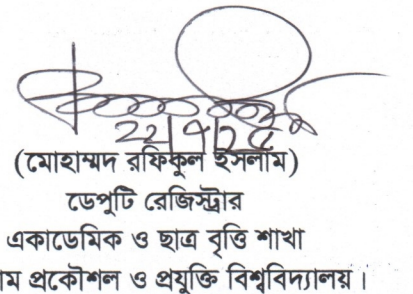 (মোহাম্মদ রফিকুল ইসলাম)
ডেপুটি রেজিস্ট্রার
একাডেমিক ও ছাত্র বৃত্তি শাখা
প্রকৌশল ও প্রযুক্তি বিশ্ববিদ্যালয়।